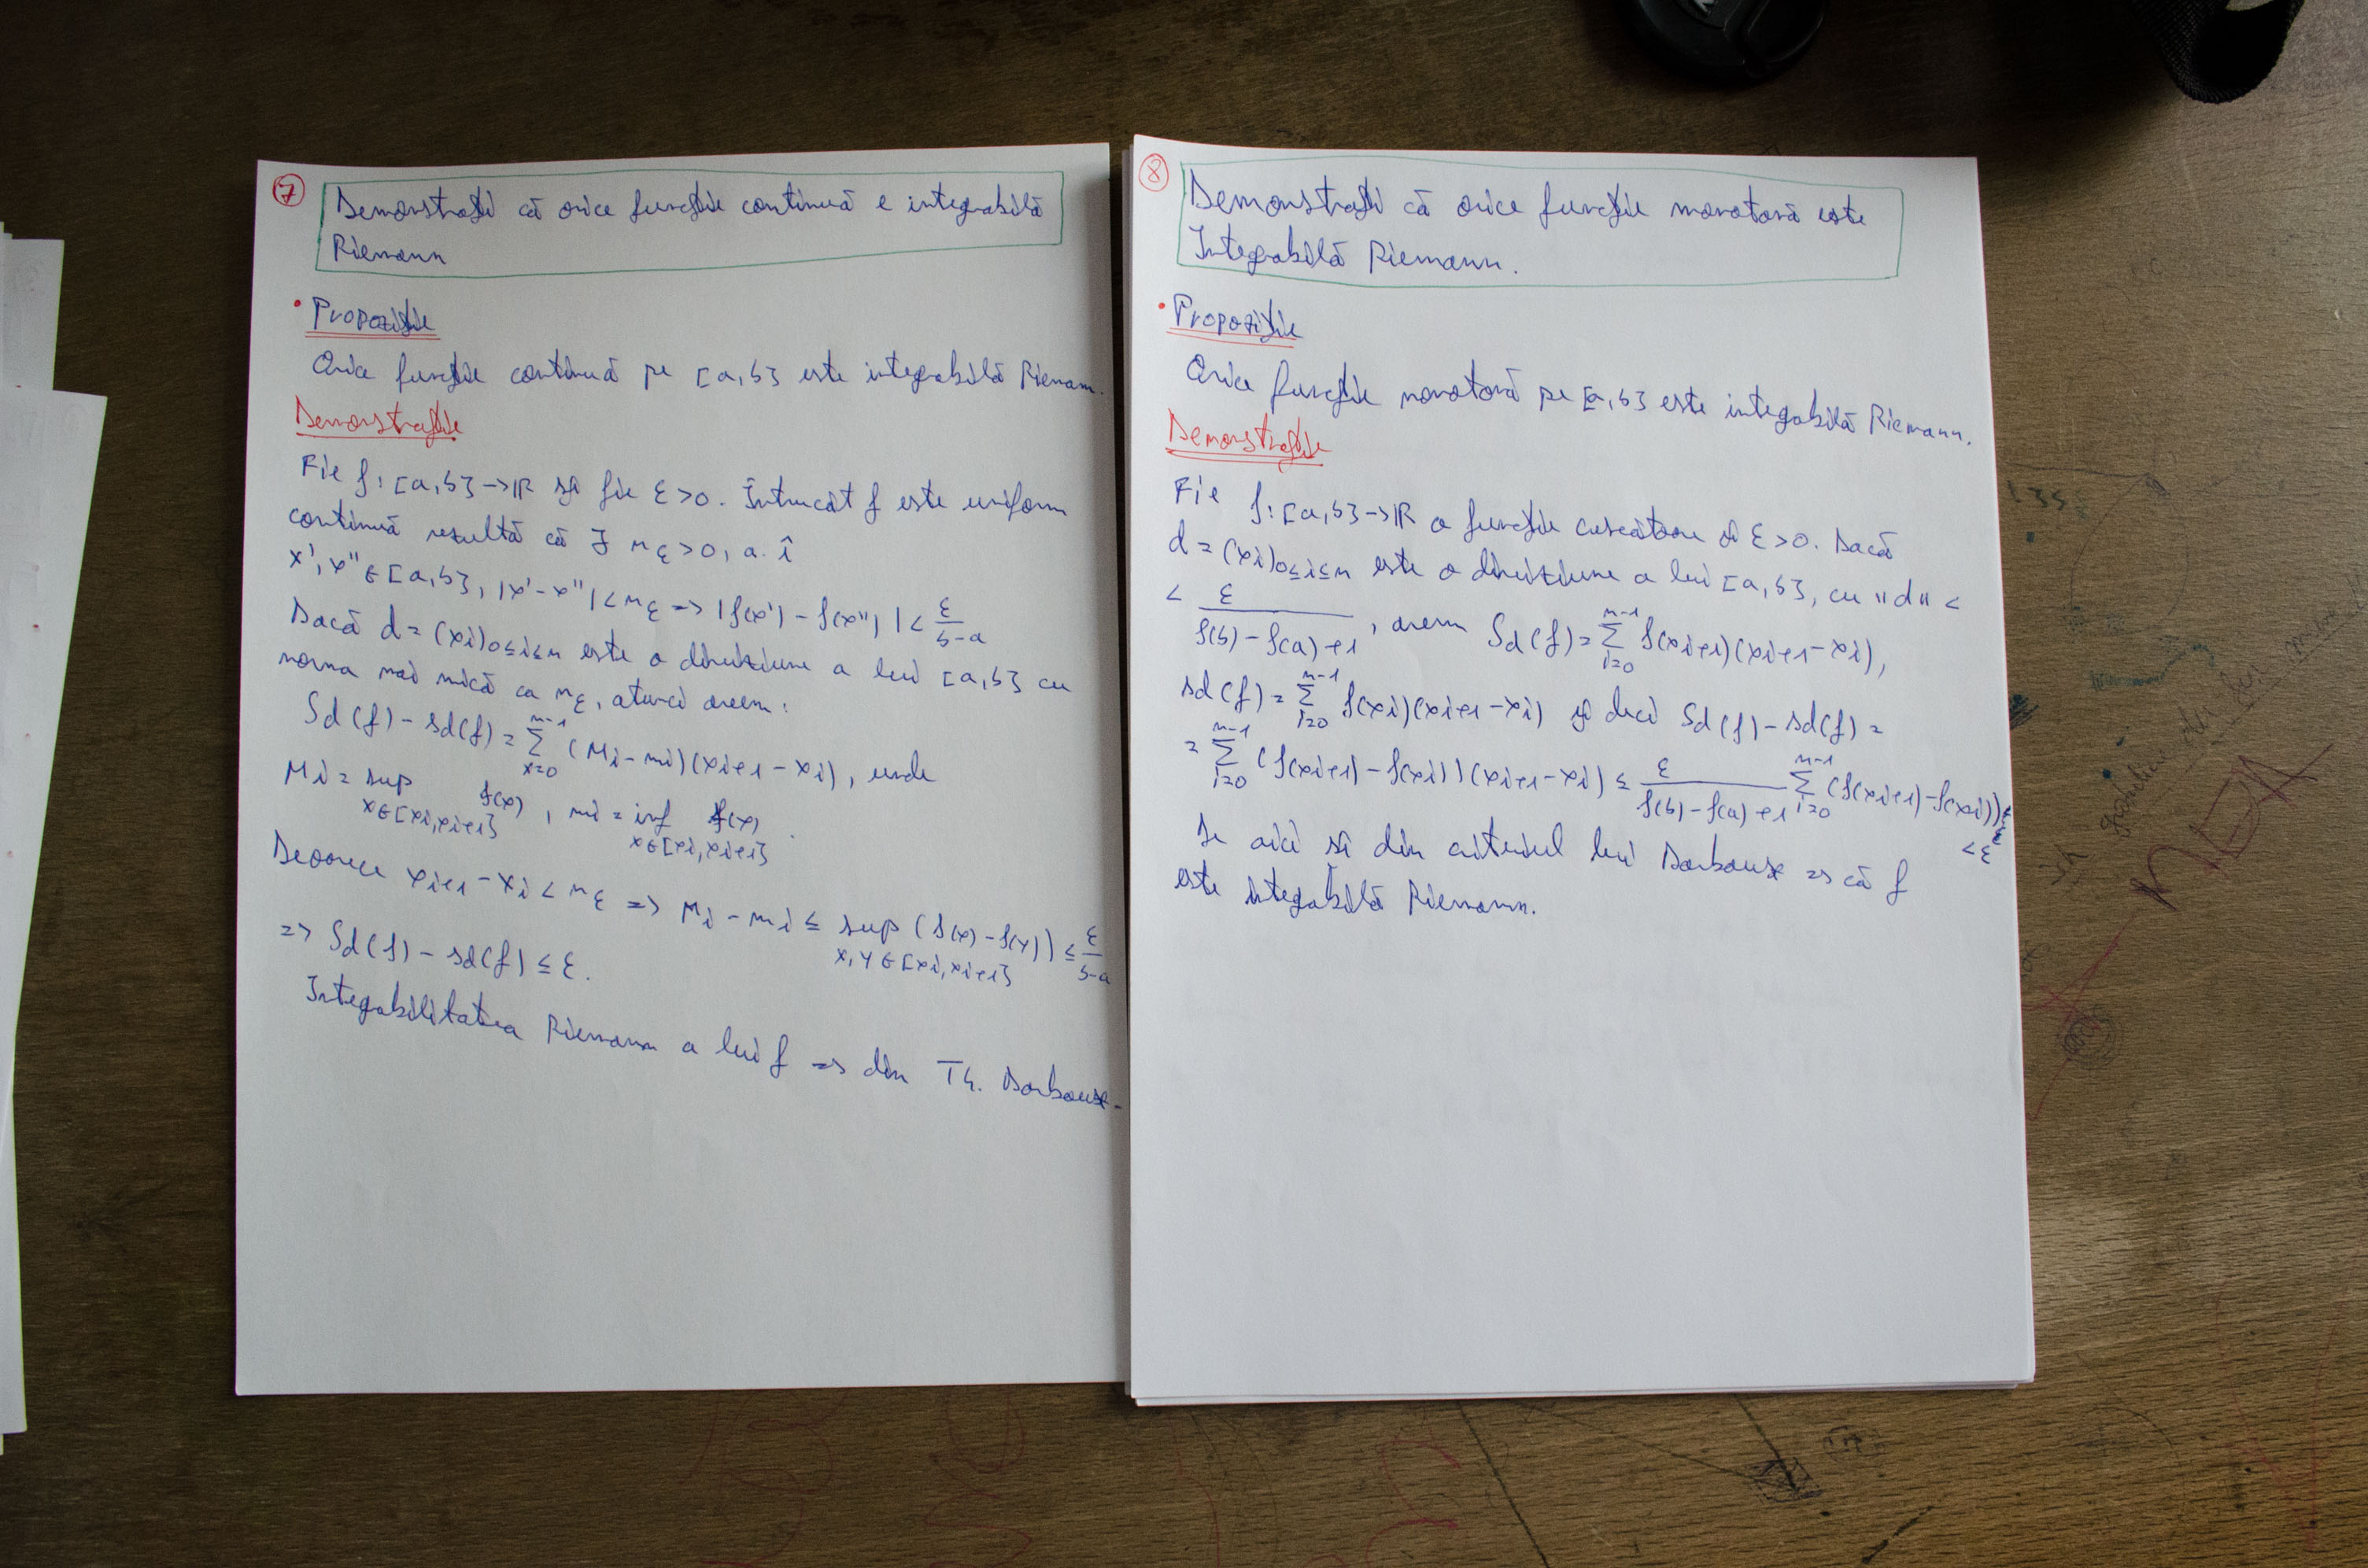 7
Demonstrați că orice funcție continuă e integrabilă
Riemann
• Propoziție
Orice funcție continuă pe [a,b] este integrabilă Riemann.
Demonstrație
Fie f: [a,b] → ℝ și fie ε > 0. Întrucât f este uniform
continuă rezultă că ∃ η_ε > 0, a. î
x', x'' ∈ [a,b], |x' - x''| < η_ε => |f(x') - f(x'')| < ε/(b-a)
Dacă d = (xi)0≤i≤n este o diviziune a lui [a,b] cu
norma mai mică ca η_ε, atunci avem:
Sd(f) - sd(f) = Σ_{x=0}^{n-1} (Mi - mi)(xi+1 - xi), unde
Mi = sup_{x∈[xi,xi+1]} f(x), mi = inf_{x∈[xi,xi+1]} f(x).
Deoarece xi+1 - xi < η_ε => Mi - mi ≤ sup_{x,y∈[xi,xi+1]} (f(x) - f(y)) ≤ ε/(b-a)
=> Sd(f) - sd(f) ≤ ε.
Integrabilitatea Riemann a lui f => din Th. Darboux.
8
Demonstrați că orice funcție monotonă este
Integrabilă Riemann.
• Propoziție
Orice funcție monotonă pe [a,b] este integrabilă Riemann.
Demonstrație
Fie f: [a,b] → ℝ o funcție crescătoare și ε > 0. Dacă
d = (xi)0≤i≤n este o diviziune a lui [a,b], cu ||d|| <
< ε/(f(b) - f(a) + 1), avem Sd(f) = Σ_{i=0}^{n-1} f(xi+1)(xi+1 - xi),
sd(f) = Σ_{i=0}^{n-1} f(xi)(xi+1 - xi) și deci Sd(f) - sd(f) =
= Σ_{i=0}^{n-1} (f(xi+1) - f(xi))(xi+1 - xi) ≤ ε/(f(b) - f(a) + 1) Σ_{i=0}^{n-1} (f(xi+1) - f(xi)) <
< ε
De aici și din criteriul lui Darboux => că f
este integrabilă Riemann.